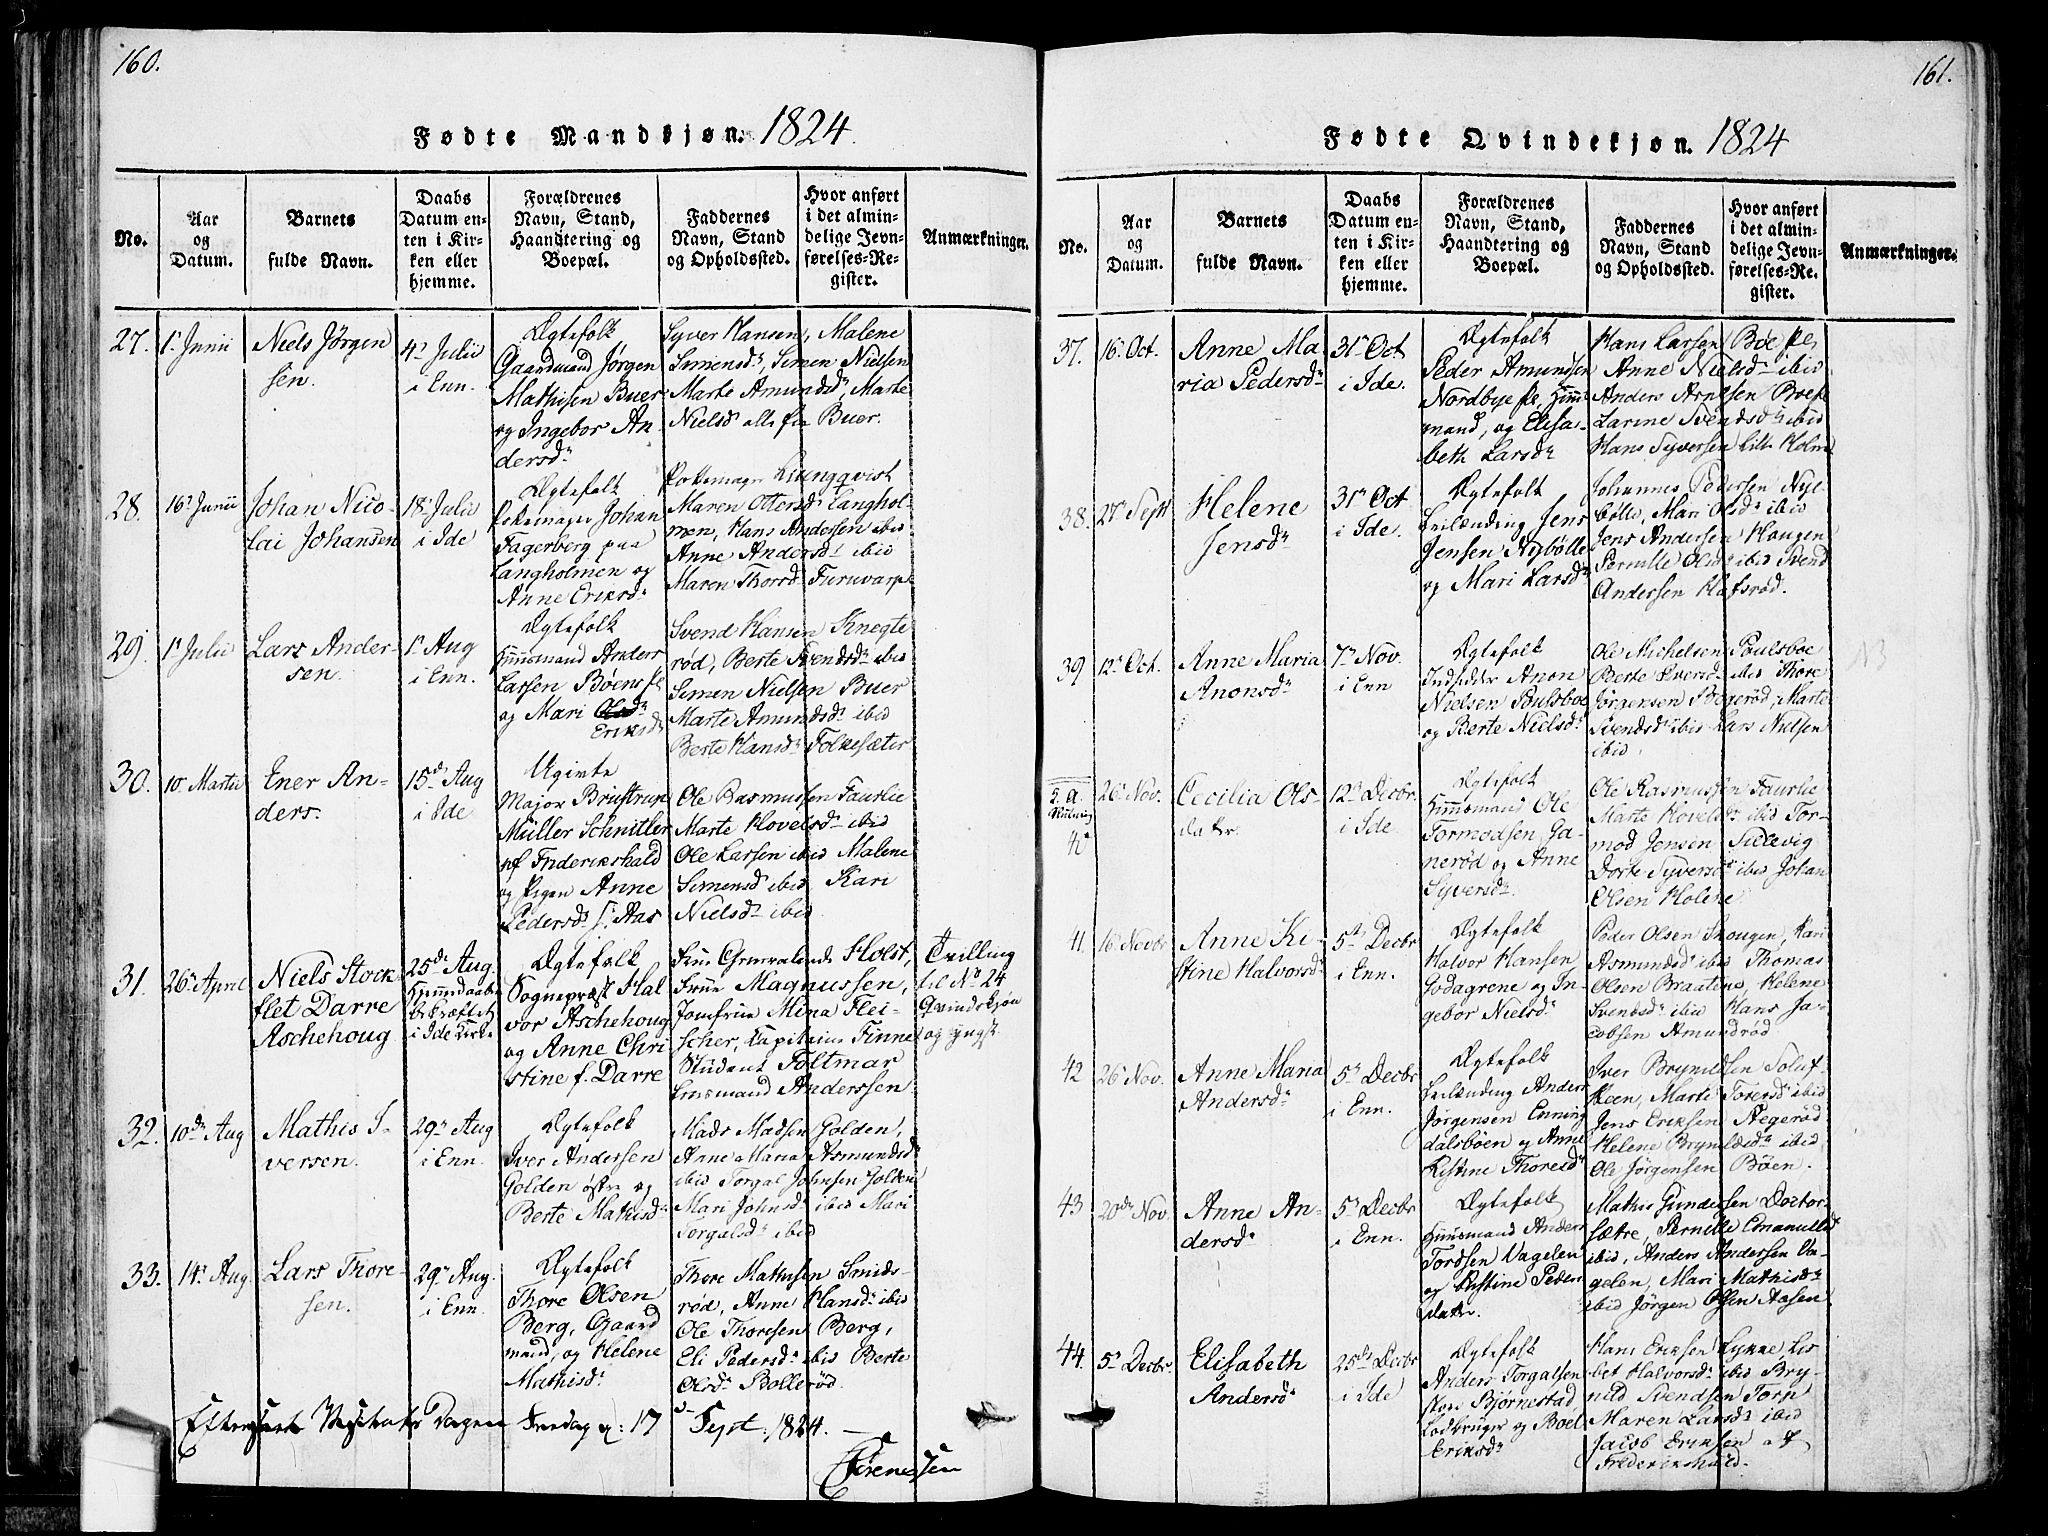 160.
Fødte Mandkjøn. 1824.
No.
Aar
og
Datum.
Barnets
fulde Navn.
Daabs
Datum en-
ten i Kir-
ken eller
hjemme.
Forældrenes
Navn, Stand,
Haandtering og
Boepæl.
Faddernes
Navn, Stand
og Opholdssted.
Hvor anført
i det almin-
delige Jevn-
førelses-Re-
gister.
Anmærkninger.
27.
1 Junii
Niels Jørgen
sen.
4 Julii
i Enn.
Ægtefolk
Gaardmand Jørgen
Mathisen Buer
og Ingebor An-
dersd
Syver Hansen, Malene
Simensd, Simen Nielsen
Marte Amundsd, Marte
Nielsd alle fra Buer.
28.
16 Junii
Johan Nico-
lai Johansen
18 Julii
i Ide
Ægtefolk
Pottemager Johan
Fagerberg paa
Langholmen og
Anne Eriksd
Pottemagr Liungqvist
Maren Ottersd Langhol-
men, Hans Andersen ibid
Anne Andersd ibid
Maren Thorsd Furuvarp
29.
1 Julii
Lars Ander-
sen.
1 Aug
i Enn.
Ægtefolk
Huusmand Anders
Larssen Bøens pl
og Mari
Eriksd
Svend Hansen Knegte
rød, Berte Svendsd ibid
Simen Nielsen Buer
Marte Amundsd ibid
Berte Hansd Folkesæter
30.
10 Martii
Ener An-
ders.
15 Aug
i Ide
Ugivte
Major Brustrup
Müller Schnitler
af Friderikshald
og Pigen Anne
Pedersd f. Aas
Ole Rasmussen Faurlie
Marte Hovelsd ibid
Ole Larssen ibid Malene
Simensd ibid Kari
Nielsd ibid
31.
26 April
Niels Stock
flet Darre
Aschehoug
25 Aug.
Hjemmedaaben
bekræftet
i Ide Kirke
Ægtefolk
Sognepræst Hal
vor Aschehoug
og Anne Chri
stine f. Darre
Frue Grosserer Holst,
Frue Magnussen,
Jomfrue Mina Flei-
scher, Capitain Finne
Student Foltmar
Anderssen
Tvilling
til No 24
Qvindekjøn
og yngst
32.
10 Aug
Mathis I-
versen.
29 Aug
i Enn.
Ægtefolk
Iver Andersen
Golden østre og
Berte Mathisd
Mads Madsen Golden,
Anne Maria Asmundsd
ibid Torgal Johnsen Golden
Mari Johnsd ibid Mari
Torgalsd ibid
33.
14 Aug.
Lars Thore-
sen.
29 Aug.
i Enn.
Ægtefolk
Thore Olsen
Berg, Gaard
mand, og Helene
Mathisd
Thore Mathisen Smids-
rød, Anne Hansd ibid
Ole Thoresen Berg,
Eli Pedersd ibid Berte
Olsd Bollerød
Efterseet Visitats Dagen Fredag d: 17 Sept: 1824.
Sørenssen
161.
Fødte Qvindekjøn. 1824
No.
Aar
og
Datum.
Barnets
fulde Navn.
Daabs
Datum en-
ten i Kir-
ken eller
hjemme.
Forældrenes
Navn, Stand,
Haandtering og
Boepæl.
Faddernes
Navn, Stand
og Opholdssted.
Hvor anført
i det almin-
delige Jevn-
førelses-Re-
gister.
Anmærkninger.
37.
16 Oct.
Anne Ma
ria Pedersd
31 Oct
i Ide.
Ægtefolk
Peder Amundsen
Nordbye pl, Huus
mand, og Elisa-
beth Larsd
Hans Larsen Bøe pl,
Anne Nielsd ibid
Anders Arntsen Boepl
Larine Svendsd ibid
Hans Syversen Lille Holm
38.
27 Sept
Helene
Jensd
31 Oct
i Ide.
Ægtefolk
Leilænding Jens
Jensen Nybølle
og Mari Larsd
Johannes Pedersen Nye
bølle, Mari Olsd ibid
Jens Andersen Haugen
Pernille Olsd ibid Svend
Andersen Hafsrød.
39
12 Oct.
Anne Maria
Anonsd
7 Nov.
i Enn
Ægtefolk
Indsidder Anon
Nielsen Poulsboe
og Berte Nielsd
Ole Michelsen Poulsboe
Berte Sversd ibid Thore
Jørgensen Bøgerød, Marte
Svendsd ibid Lars Nielsen
ibid.
NB
40
26 Nov.
Cecilia Ols-
dater.
12 Decbr.
i Ide.
Ægtefolk
Huusmand Ole
Tormodsen, Ga-
nerød og Anne
Syversd
Ole Rasmussen Faurlie
Marte Hovelsd ibid Tor-
mod Jensen Sillevig
Dorte Syversd ibid Johan
Olsen Holene
41.
16 Novbr
Anne Ki-
stine Halvorsd
5 Decbr
i Enn.
Ægtefolk
Halvor Hansen
Godagrene og In-
gebor Nielsd
Peder Olsen Skougen, Kari
Asmundsd ibid Thomas
Olsen Braatene, Helene
Svendsd ibid Hans Ja-
cobsen Amundrød
42
26 Nov.
Anne Maria
Andersd
5 Decbr
i Enn.
Ægtefolk
Leilænding Anders
Jørgensen Enning
dalsbøen og Anne
Kistine Thoresd
Iver Bryndelsen Solus-
keen, Marte Torersd ibid
Jens Eriksen Negerød
Helene Bryndelsd ibid
Ole Jørgensen Bøen.
43
20 Nov.
Anne An-
dersd
5 Decbr
i Enn.
Ægtefolk
Huusmand Anders
Tordsen Vagelen
og Kistine Peders
dater.
Mathis Gundersen Doctor-
sætre, Pernille Emanuelsd
ibid, Anders Andersen Va-
gelen, Mari Mathisd
ibid Jørgen Olsen Aasen
44.
5 Decbr.
Elisabeth
Andersd
25 Decbr
i Ide
Ægtefolk
Anders Torgalsen
store Bjørnestad
Lodbruger og Boel
Eriksd
Hans Eriksen Lykke Lis
bet Halvorsd ibid Bry-
nild Svendsen Torp
Maren Larsd ibid
Jacob Eriksen af
Frederikshald.